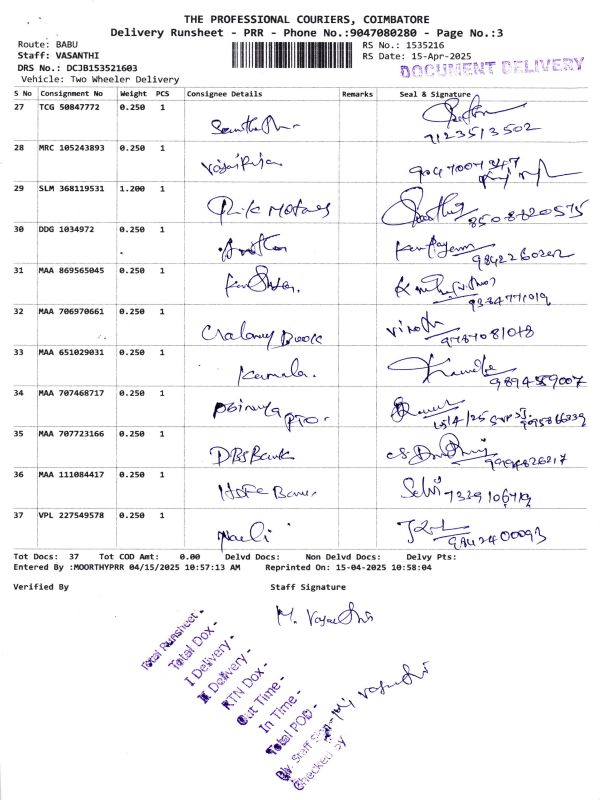 THE PROFESSIONAL COURIERS, COIMBATORE
Delivery Runsheet - PRR - Phone No.:9047080280 - Page No.:3
Route: BABU RS No.: 1535216
Staff: VASANTHI RS Date: 15-Apr-2025
DRS No.: DCJB153521603 DOCUMENT DELIVERY
Vehicle: Two Wheeler Delivery
S No Consignment No Weight PCS Consignee Details Remarks Seal & Signature
27 TCG 50847772 0.250 1
7123513502
28 MRC 105243893 0.250 1
29 SLM 368119531 1.200 1
8508820575
30 DDG 1034972 0.250 1
9842260202
31 MAA 869565045 0.250 1
9384771019
32 MAA 706970661 0.250 1
9787081048
33 MAA 651029031 0.250 1 Kamala.
9894559007
34 MAA 707468717 0.250 1
15/4/25
35 MAA 707723166 0.250 1 DBS Bank
36 MAA 111084417 0.250 1 HDFC Bank Selvi
37 VPL 227549578 0.250 1
9842400093
Tot Docs: 37 Tot COD Amt: 0.00 Delvd Docs: Non Delvd Docs: Delvy Pts:
Entered By :MOORTHYPRR 04/15/2025 10:57:13 AM Reprinted On: 15-04-2025 10:58:04
Verified By Staff Signature
Total Runsheet -
Total Dox -
I Delivery -
II Delivery -
RTN Dox -
Out Time -
In Time -
Total POD -
Dly. Staff Sign -
Checked by